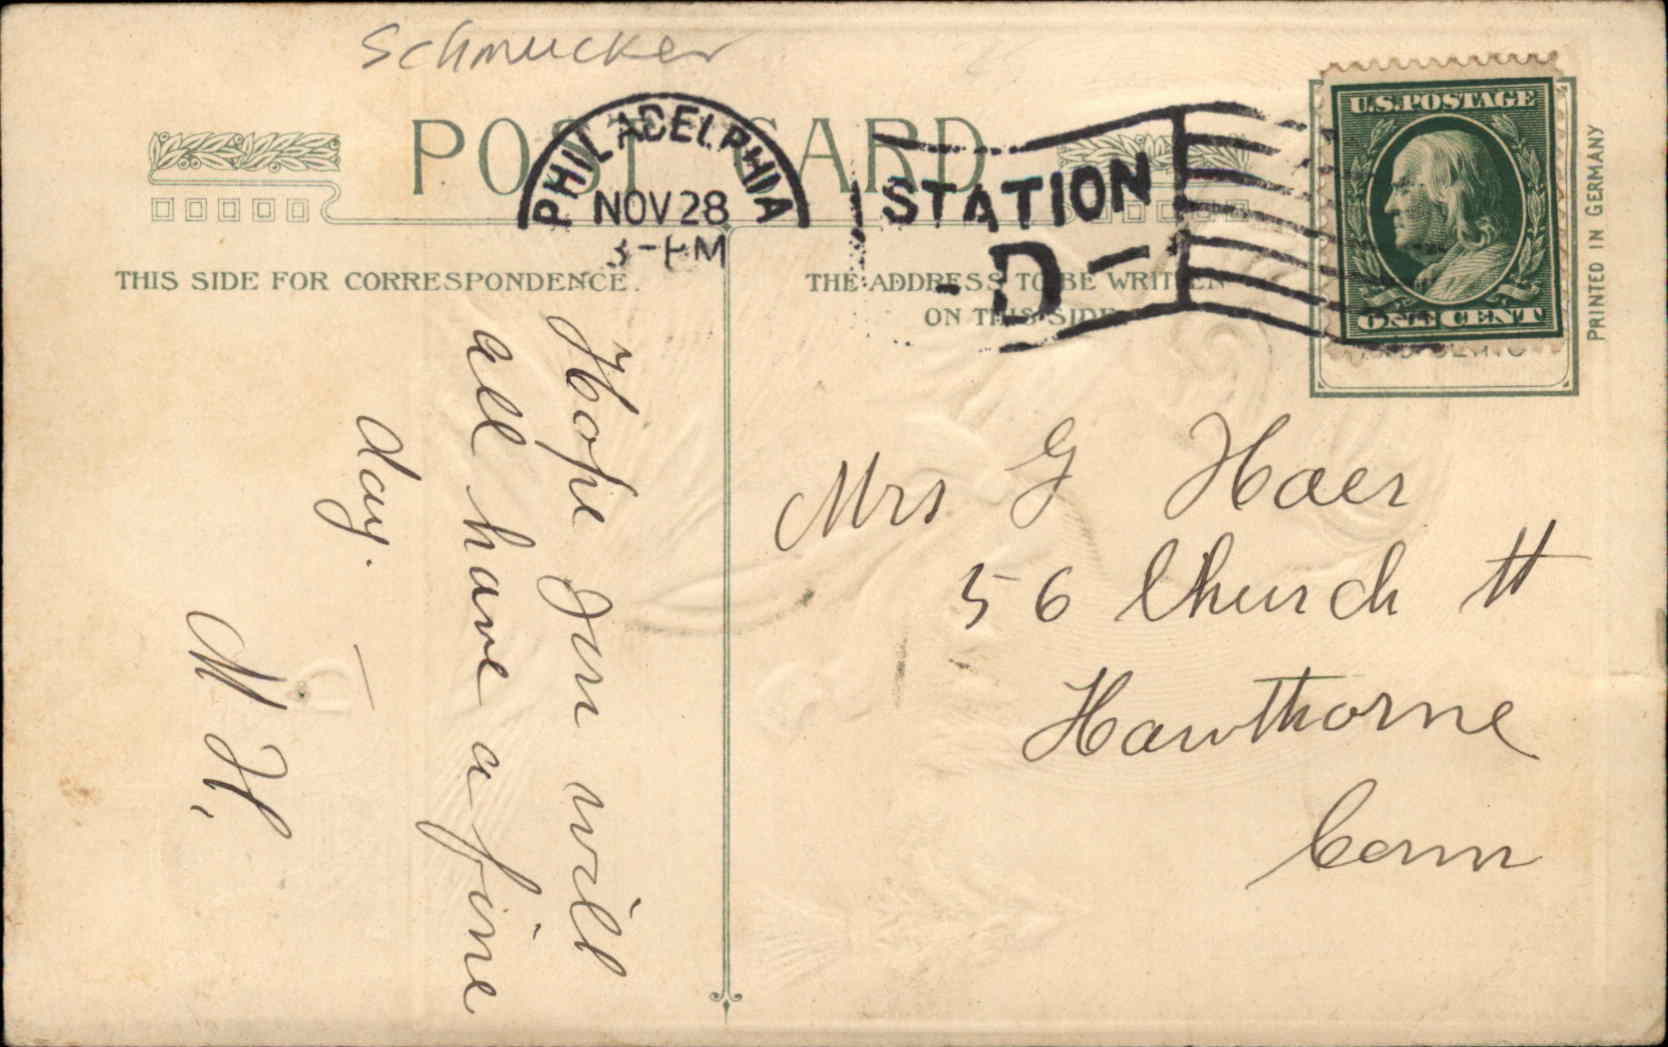 Schmucker
POST CARD
PHILADELPHIA
NOV 28
3-PM
STATION
-D-
U.S. POSTAGE
ONE CENT
PRINTED IN GERMANY
THIS SIDE FOR CORRESPONDENCE.
THE ADDRESS TO BE WRITTEN
ON THIS SIDE.
Hope you will
all have a fine
day.
M H.
Mrs G Haes
56 Church St
Hawthorne
Conn